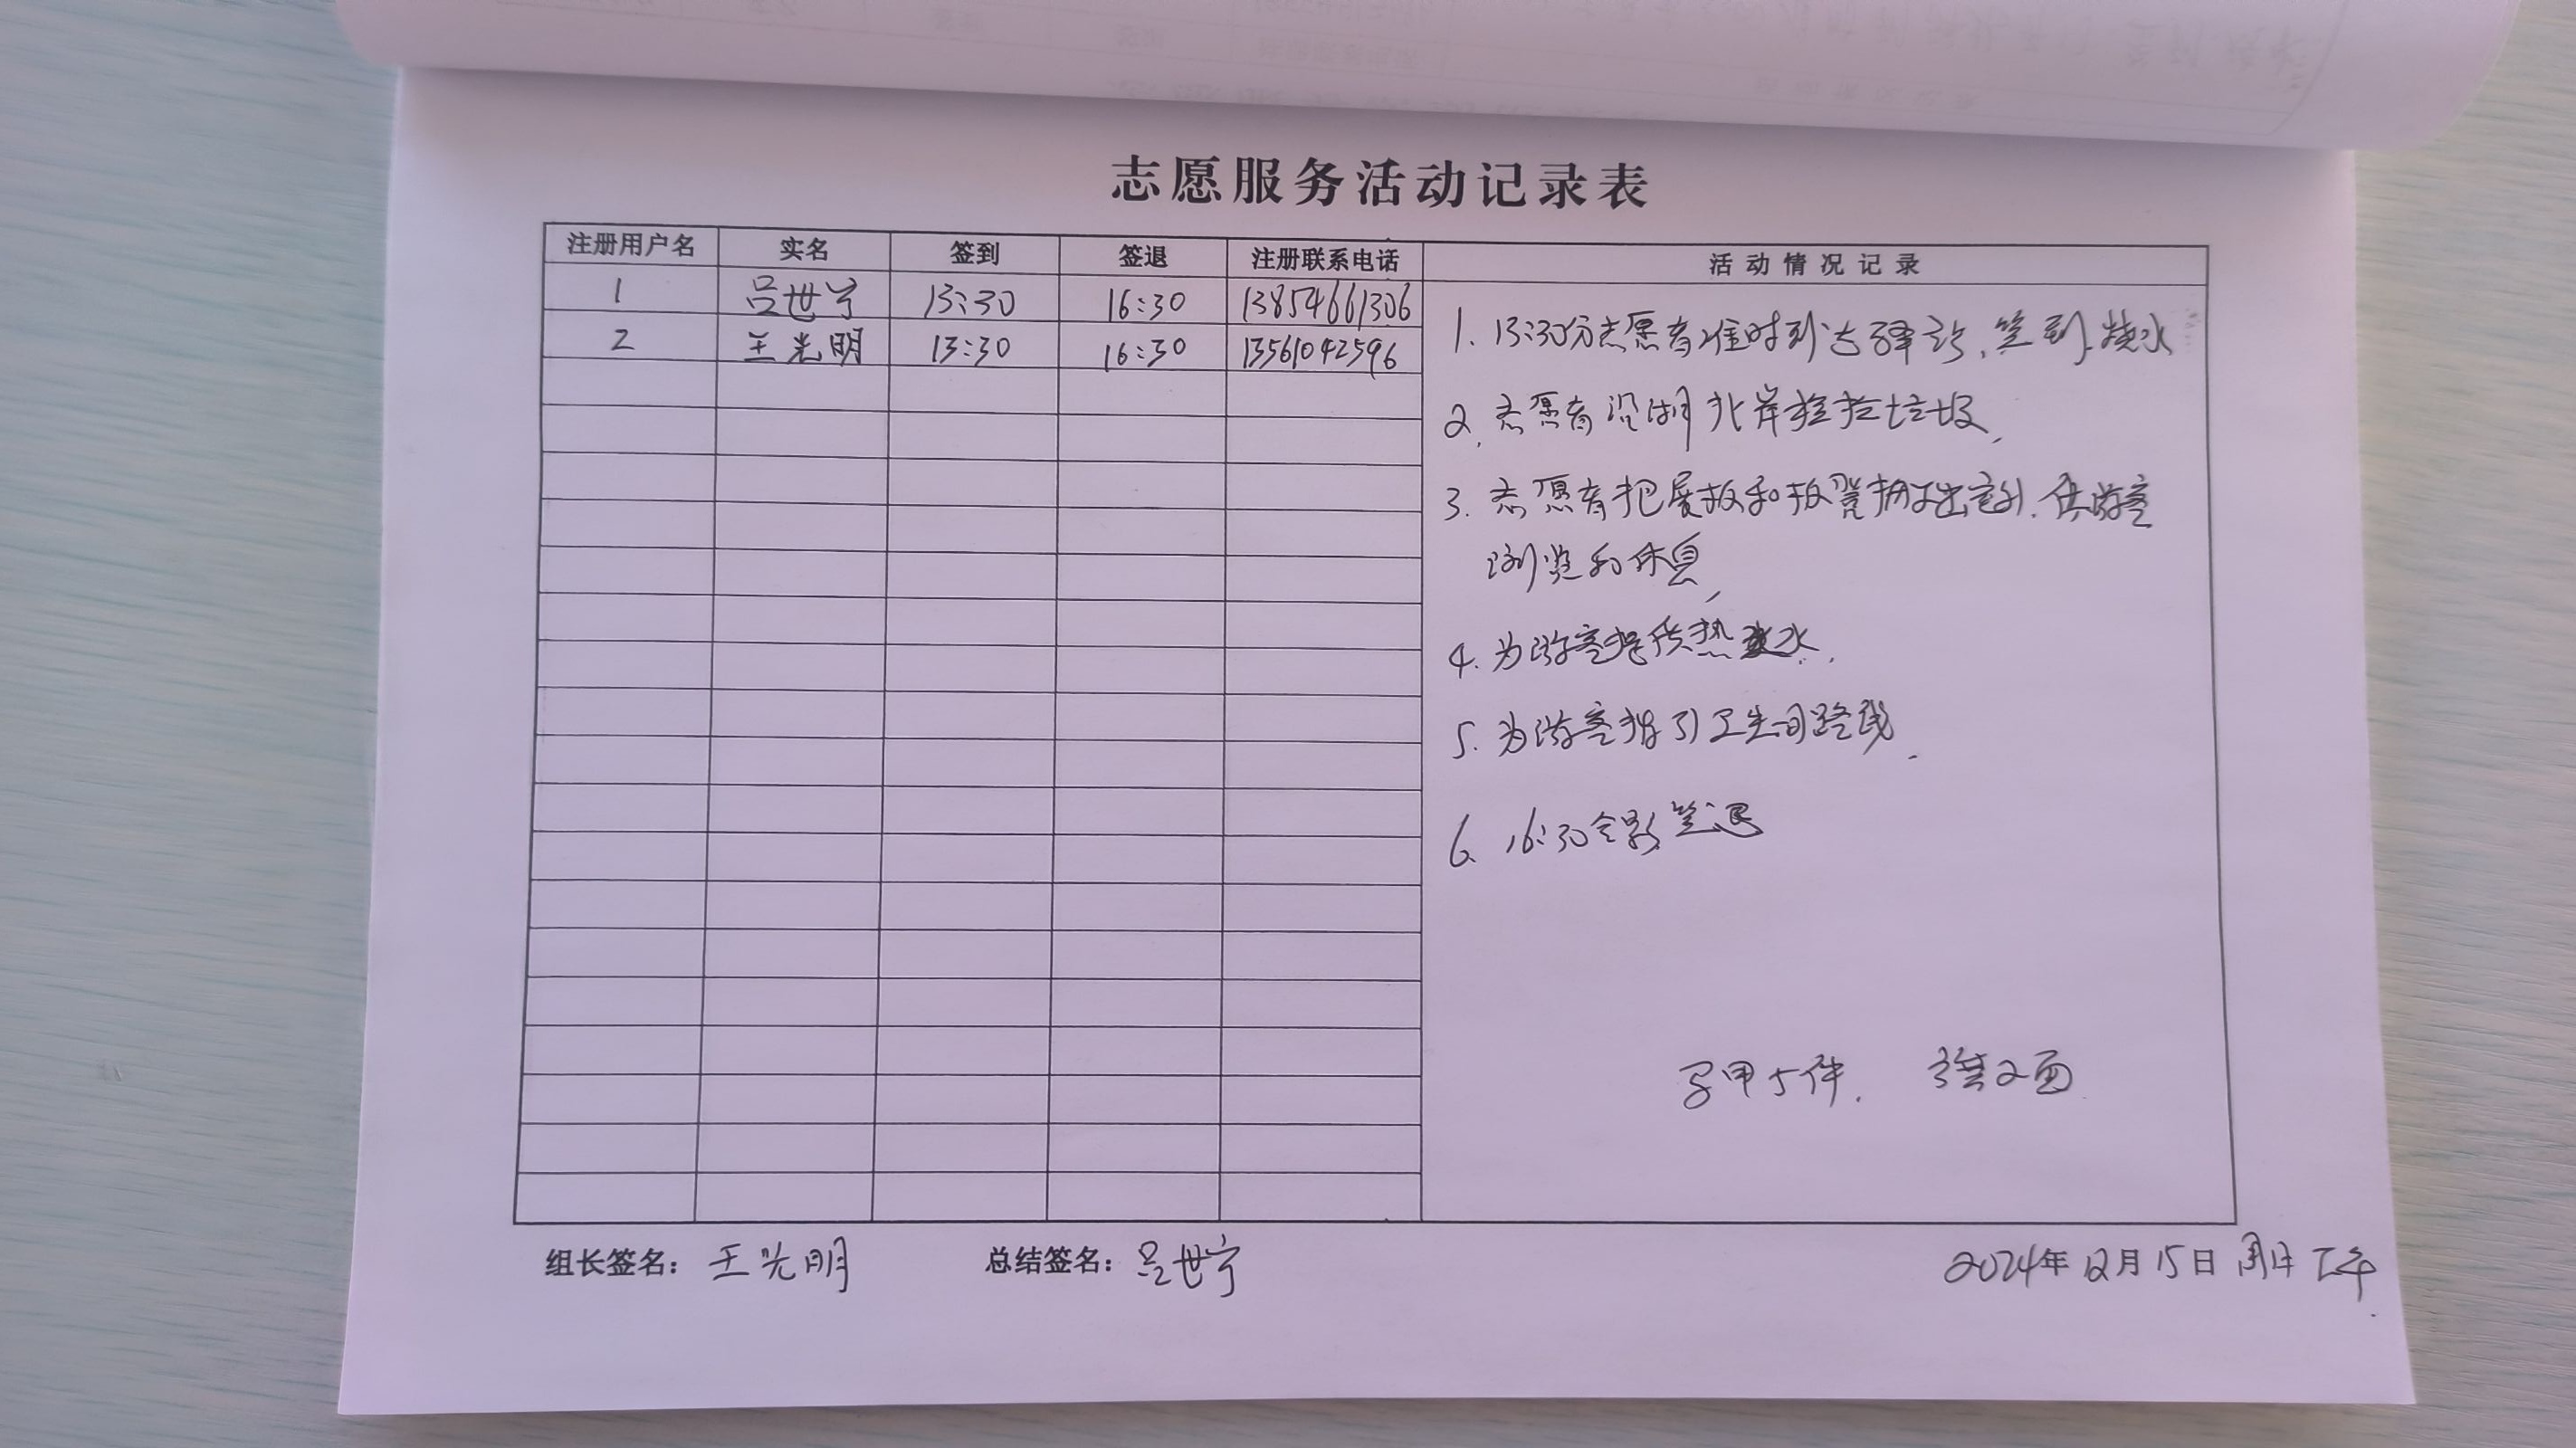 志愿服务活动记录表
注册用户名 实名 签到 签退 注册联系电话 活动情况记录
1 吕世宁 13:30 16:30 13854661306
2 王光明 13:30 16:30 13561042596
1. 13:30分志愿者准时到达驿站、签到、烧水
2. 志愿者沿湖北岸捡拾垃圾、
3. 志愿者把展板和板凳搬出室外、供游客
浏览和休息、
4. 为游客提供热水、
5. 为游客指引卫生间路线、
6. 16:30合影签退
马甲5件. 旗2面
组长签名: 王光明 总结签名: 吕世宁 2024年12月15日 周日 下午